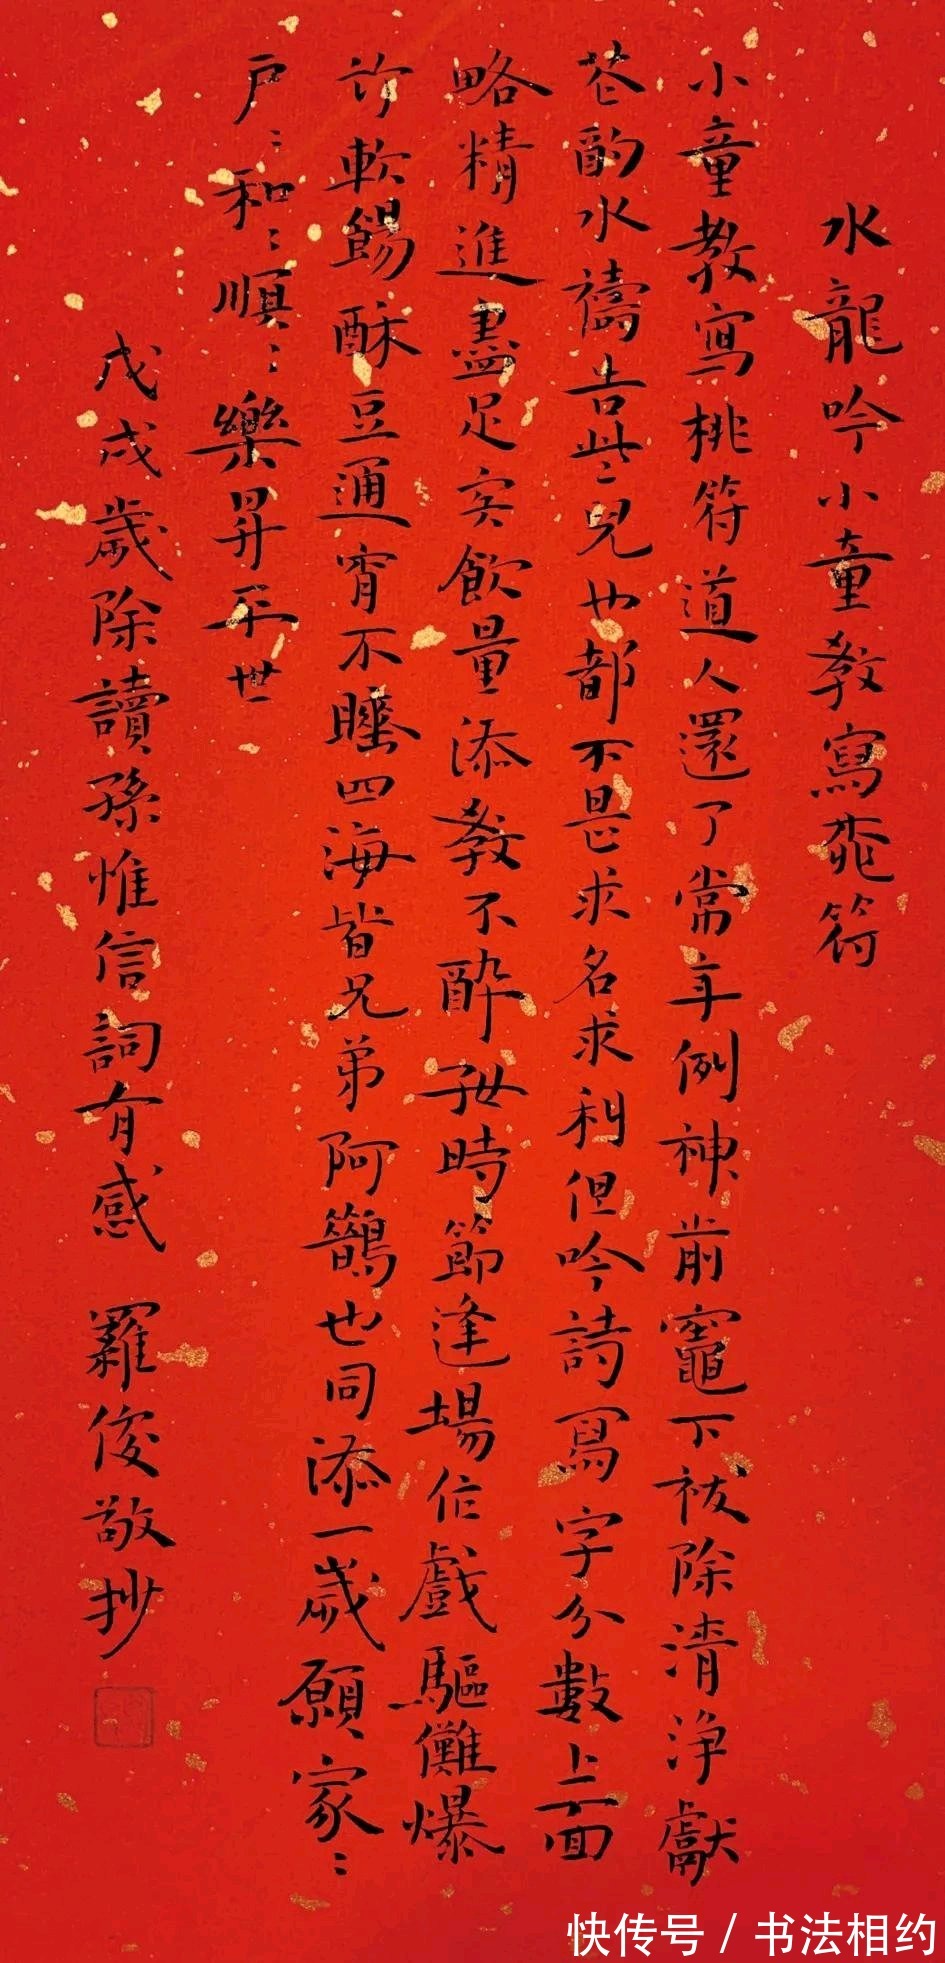 水龍吟小童教寫桃符
小童教寫桃符道人還了常年例神前竈下祓除清浄獻
花酌水禱告些々兒也都不是求名求利但吟詩寫字分數上面
略精進盡足矣飲量添教不酔好時節逢場作戲驅儺爆
竹軟餳酥豆通宵不睡四海皆兄弟阿鵲也同添一歲願家〻
戶〻和〻順〻樂昇平世
戊戌歲除讀孫惟信詞有感 羅俊敬抄
快传号 / 书法相约